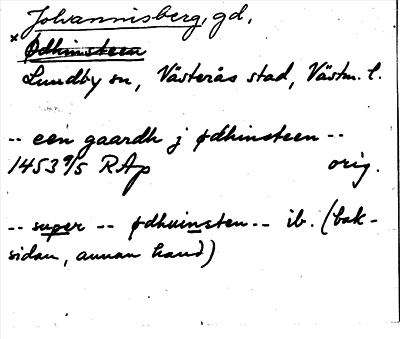 Johannisberg, gd,
× Ødhinsteen
Lundby sn, Västerås stad, Västm. l.
-- een gaardh j ødhinsteen --
1453 9/5 RAp orig.
-- super -- ødhuinsten -- ib. (bak-
sidan, annan hand)